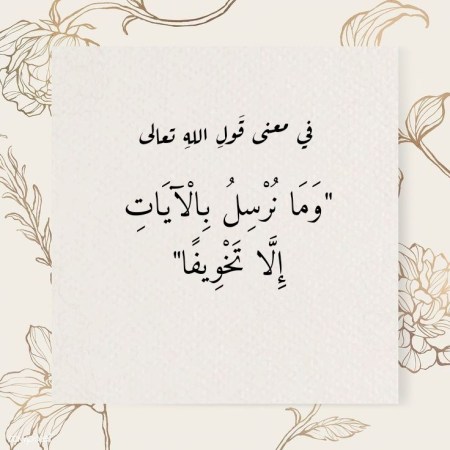 في معنى قَولِ اللهِ تعالى
"وَمَا نُرْسِلُ بِالْآيَاتِ
إِلَّا تَخْوِيفًا"